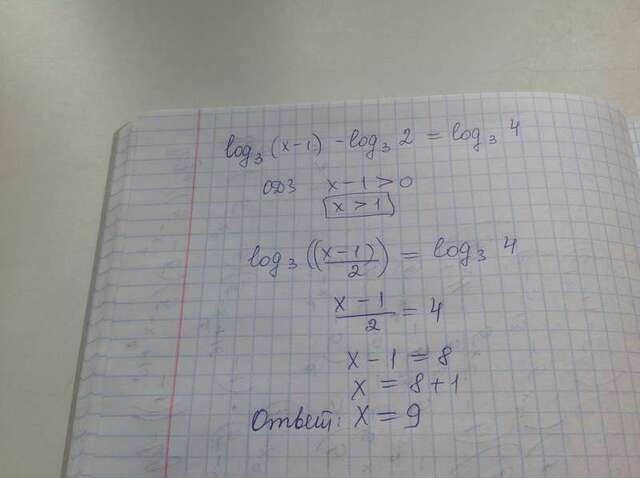 log₃(x-1) - log₃ 2 = log₃ 4
ОДЗ x-1>0
x>1
log₃((x-1)/2) = log₃ 4
(x-1)/2 = 4
x-1 = 8
x = 8+1
Ответ: x = 9